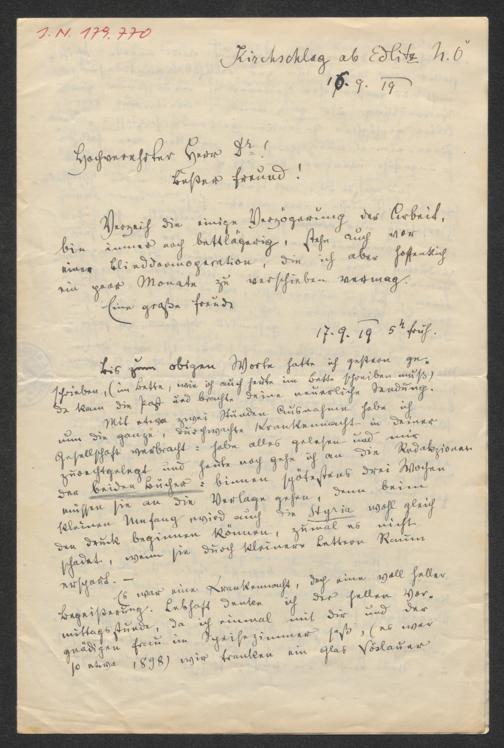 J. N. 179.770
Kirchschlag ab Edlitz N. Ö
16. 9. 19
Hochverehrter Herr Dr!
Bester Freund!
Verzeih die einige Verzögerung der Arbeit,
bin immer noch bettlägerig, stehe auch vor
einer Blinddarmoperation, die ich aber hoffentlich
ein paar Monate zu verschieben vermag.
Eine große Freude
17. 9. 19 5h früh.
Bis zum obigen Worte hatte ich gestern ge-
schrieben, (im Bette, wie ich auch heute im Bette schreiben muß)
da kam die Post und brachte deine neuerliche Sendung.
Mit etwa zwei Stunden Ausnahme habe ich
nun die ganze, durchwachte Krankennacht in deiner
Gesellschaft verbracht: habe alles gelesen und mir
zurechtgelegt und heute noch gehe ich an die Redaktionen
der beiden Bücher: binnen spätestens drei Wochen
müssen sie an die Verlage gehen, denn beim
kleinen Umfang wird auch die Styria wohl gleich
den Druck beginnen können, zumal es nicht
schadet, wenn sie durch kleinere Lettern Raum
erspart. —
Es war eine Krankennacht, doch eine voll heller
Begeisterung. Lebhaft denken ich der hellen Vor-
mittagsstunde, da ich einmal mit dir und der
gnädigen Frau im Speisezimmer saß, (es war
so etwa 1898) wir tranken ein Glas Vöslauer